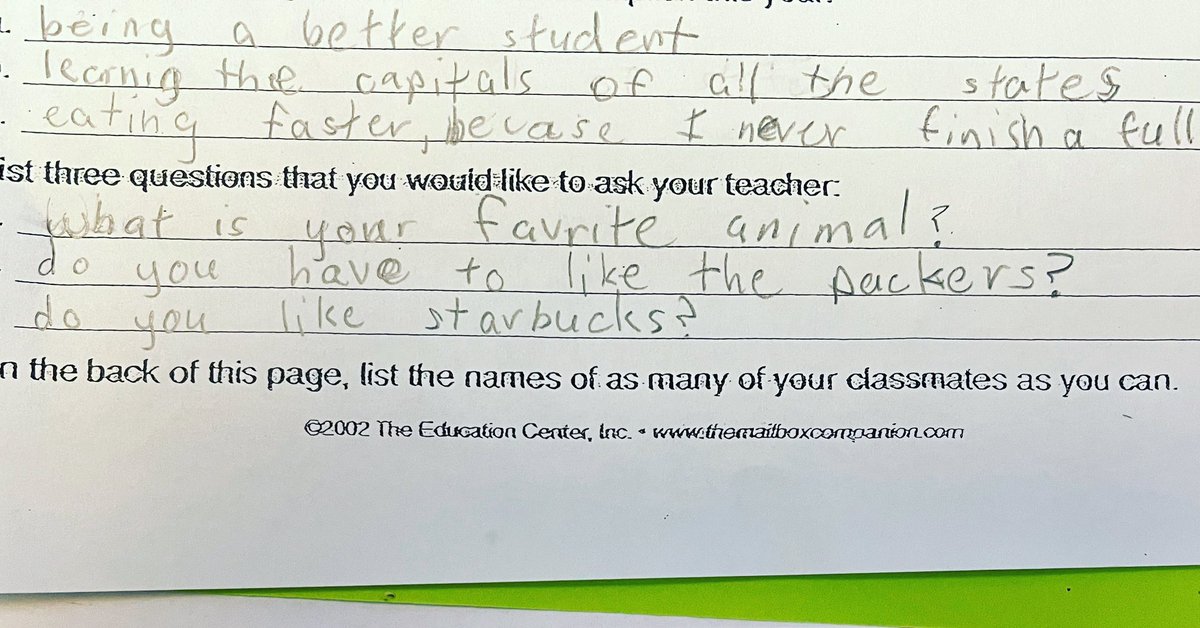 being a better student
learnig the capitals of all the states
eating faster, becase I never finish a full
ist three questions that you would like to ask your teacher:
what is your favrite animal?
do you have to like the packers?
do you like starbucks?
n the back of this page, list the names of as many of your classmates as you can.
©2002 The Education Center, Inc. • www.themailboxcompanion.com